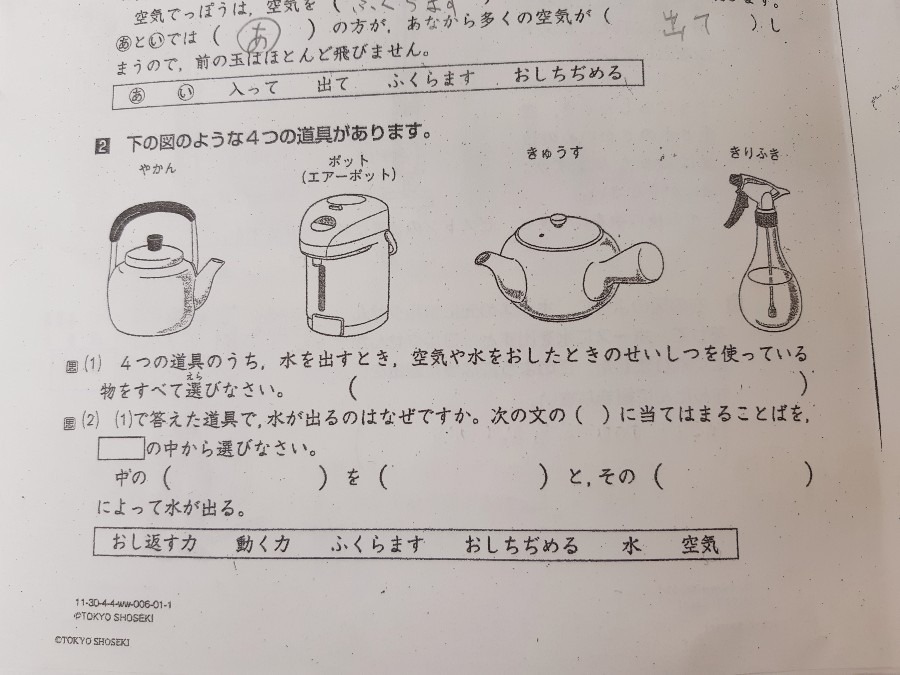 空気でっぽうは，空気を（ ふくらます
あといでは（ あ ）の方が，あなから多くの空気が（ 出て ）し
まうので，前の玉はほとんど飛びません。
あ い 入って 出て ふくらます おしちぢめる
2 下の図のような4つの道具があります。
やかん
ポット
（エアーポット）
きゅうす
きりふき
(1) 4つの道具のうち，水を出すとき，空気や水をおしたときのせいしつを使っている
えら
物をすべて選びなさい。（ ）
(2) (1)で答えた道具で，水が出るのはなぜですか。次の文の（ ）に当てはまることばを，
の中から選びなさい。
中の（ ）を（ ）と，その（ ）
によって水が出る。
おし返す力 動く力 ふくらます おしちぢめる 水 空気
11-30-4-4-ww-006-01-1
©TOKYO SHOSEKI
©TOKYO SHOSEKI